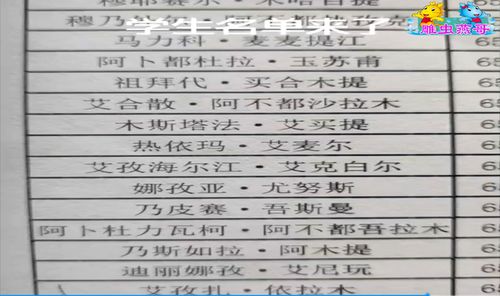 穆耶赛尔·米哈普提
学生名单来了
雕虫燕哥
马力科·麦麦提江
阿卜都杜拉·玉苏甫 65
祖拜代·买合木提 65
艾合散·阿不都沙拉木 65
木斯塔法·艾买提 65
热依玛·艾麦尔 65
艾孜海尔江·艾克白尔 65
娜孜亚·尤努斯 65
乃皮赛·吾斯曼 65
阿卜杜力瓦柯·阿不都吾拉木 65
乃斯如拉·阿木提 65
迪丽娜孜·艾尼玩 65
艾孜扎·依拉木 65